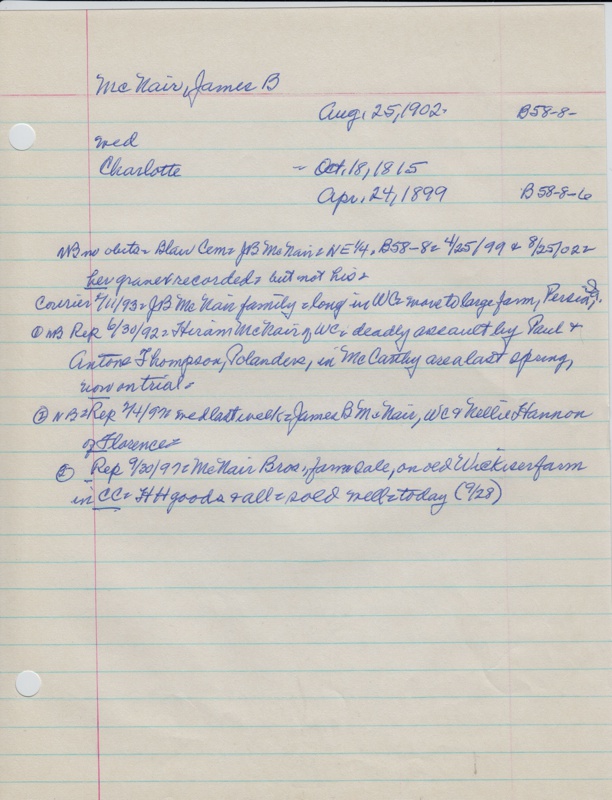 McNair, James B
Aug. 25, 1902. B58-8-
med
Charlotte - Oct. 18, 1815
Apr. 24, 1899 B58-8-6
NB no obits = Blair Cem = JB McNair = NE 1/4, B58-8 = 4/25/99 & 8/25/02 =
her grave & recorded = but not his =
Courier /11/93 = JB McNair family = long in WC = move to large farm, Persia,
① NB Rep 6/30/92 = Hiram McNair of WC = deadly assault by Paul &
Antone Thompson, Polanders, in McCarthy area last spring,
now on trial =
② NB = Rep med last week = James B McNair, WC & Nellie Hannon
of Florence =
② Rep 9/30/97 = McNair Bros, farm sale, on old Wickiser farm
in CC = HH goods & all = sold well = today (9/28)